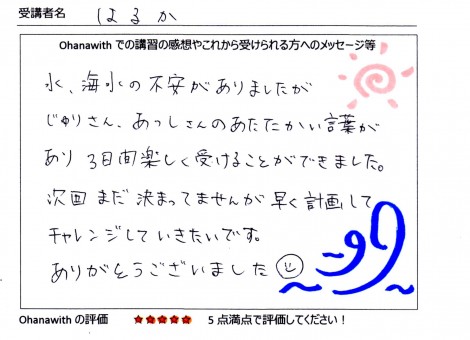 受講者名 はるか
Ohanawith での講習の感想やこれから受けられる方へのメッセージ等
水、海水の不安がありましたが
じゅりさん、あっしさんのあたたかい言葉が
あり 3日間楽しく受けることができました。
次回 まだ 決まってませんが 早く計画して
チャレンジしていきたいです。
ありがとうございました
Ohanawith の評価 ★★★★★ 5 点満点で評価してください!